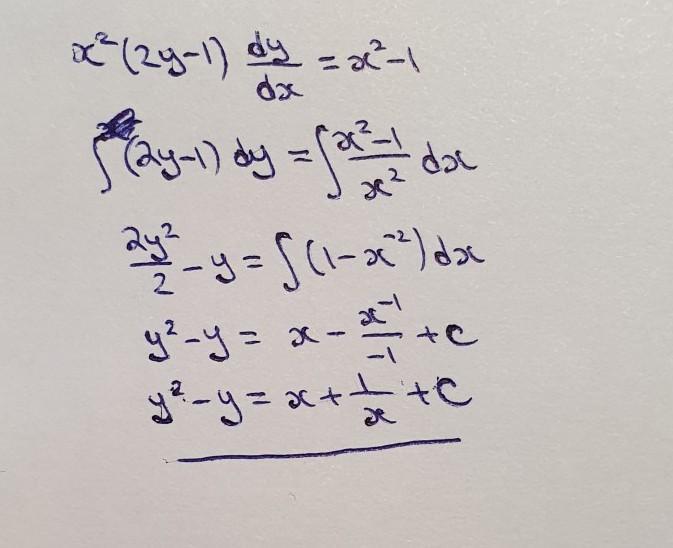 x²(2y-1) dy/dx = x²-1
∫(2y-1) dy = ∫ (x²-1)/x² dx
2y²/2 - y = ∫(1-x⁻²) dx
y²-y = x - x⁻¹/-1 + c
y²-y = x + 1/x + C